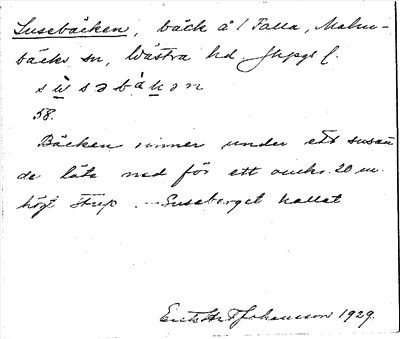 Susebäcken, bäck å 1 Falla, Malm-
bäcks sn, Västra hd Jkpgs l.
s ù s ə b à k ə n
58.
Bäcken rinner under ett susan
de läte ned för ett omkr. 20 m.
högt stup. - Suseberget kallat
Johansson 1929.